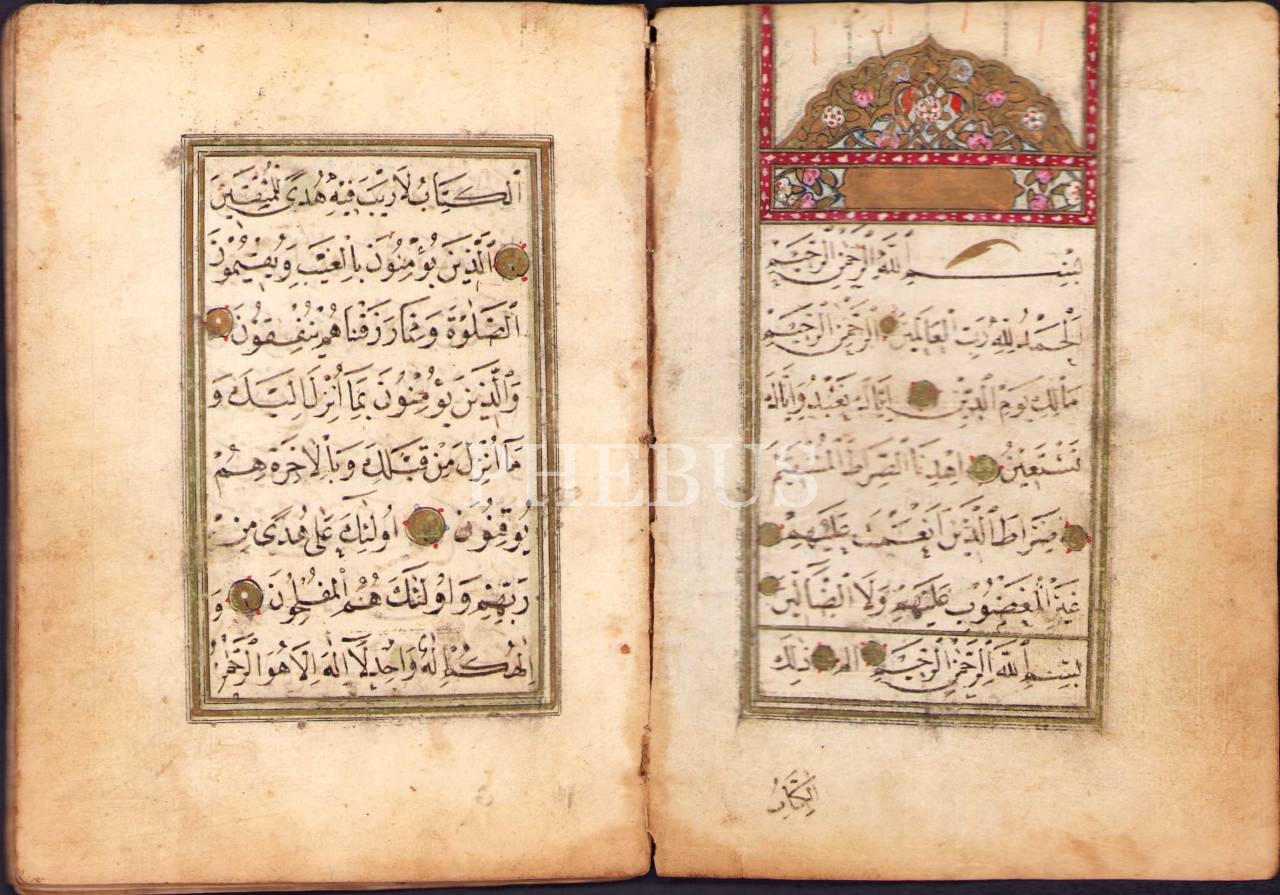 بِسْمِ اللّٰهِ الرَّحْمٰنِ الرَّحِيمِ
اَلْحَمْدُ لِلّٰهِ رَبِّ الْعَالَمِينَ الرَّحْمٰنِ الرَّحِيمِ
مَالِكِ يَوْمِ الدِّينِ اِيَّاكَ نَعْبُدُ وَاِيَّاكَ
نَسْتَعِينُ اِهْدِنَا الصِّرَاطَ الْمُسْتَقِيمَ
صِرَاطَ الَّذِينَ اَنْعَمْتَ عَلَيْهِمْ
غَيْرِ الْمَغْضُوبِ عَلَيْهِمْ وَلَا الضَّالِّينَ
بِسْمِ اللّٰهِ الرَّحْمٰنِ الرَّحِيمِ الم ذٰلِكَ
الْكِتَابُ
اَلْكِتَابُ لَا رَيْبَ فِيهِ هُدًى لِلْمُتَّقِينَ
اَلَّذِينَ يُؤْمِنُونَ بِالْغَيْبِ وَيُقِيمُونَ
الصَّلٰوةَ وَمِمَّا رَزَقْنَاهُمْ يُنْفِقُونَ
وَالَّذِينَ يُؤْمِنُونَ بِمَا اُنْزِلَ اِلَيْكَ وَ
مَا اُنْزِلَ مِنْ قَبْلِكَ وَبِالْاٰخِرَةِ هُمْ
يُوقِنُونَ اُولٰئِكَ عَلٰى هُدًى مِنْ
رَبِّهِمْ وَاُولٰئِكَ هُمُ الْمُفْلِحُونَ وَ
اِلٰهُكُمْ اِلٰهٌ وَاحِدٌ لَا اِلٰهَ اِلَّا هُوَ الرَّحْمٰنُ
PHEBUS